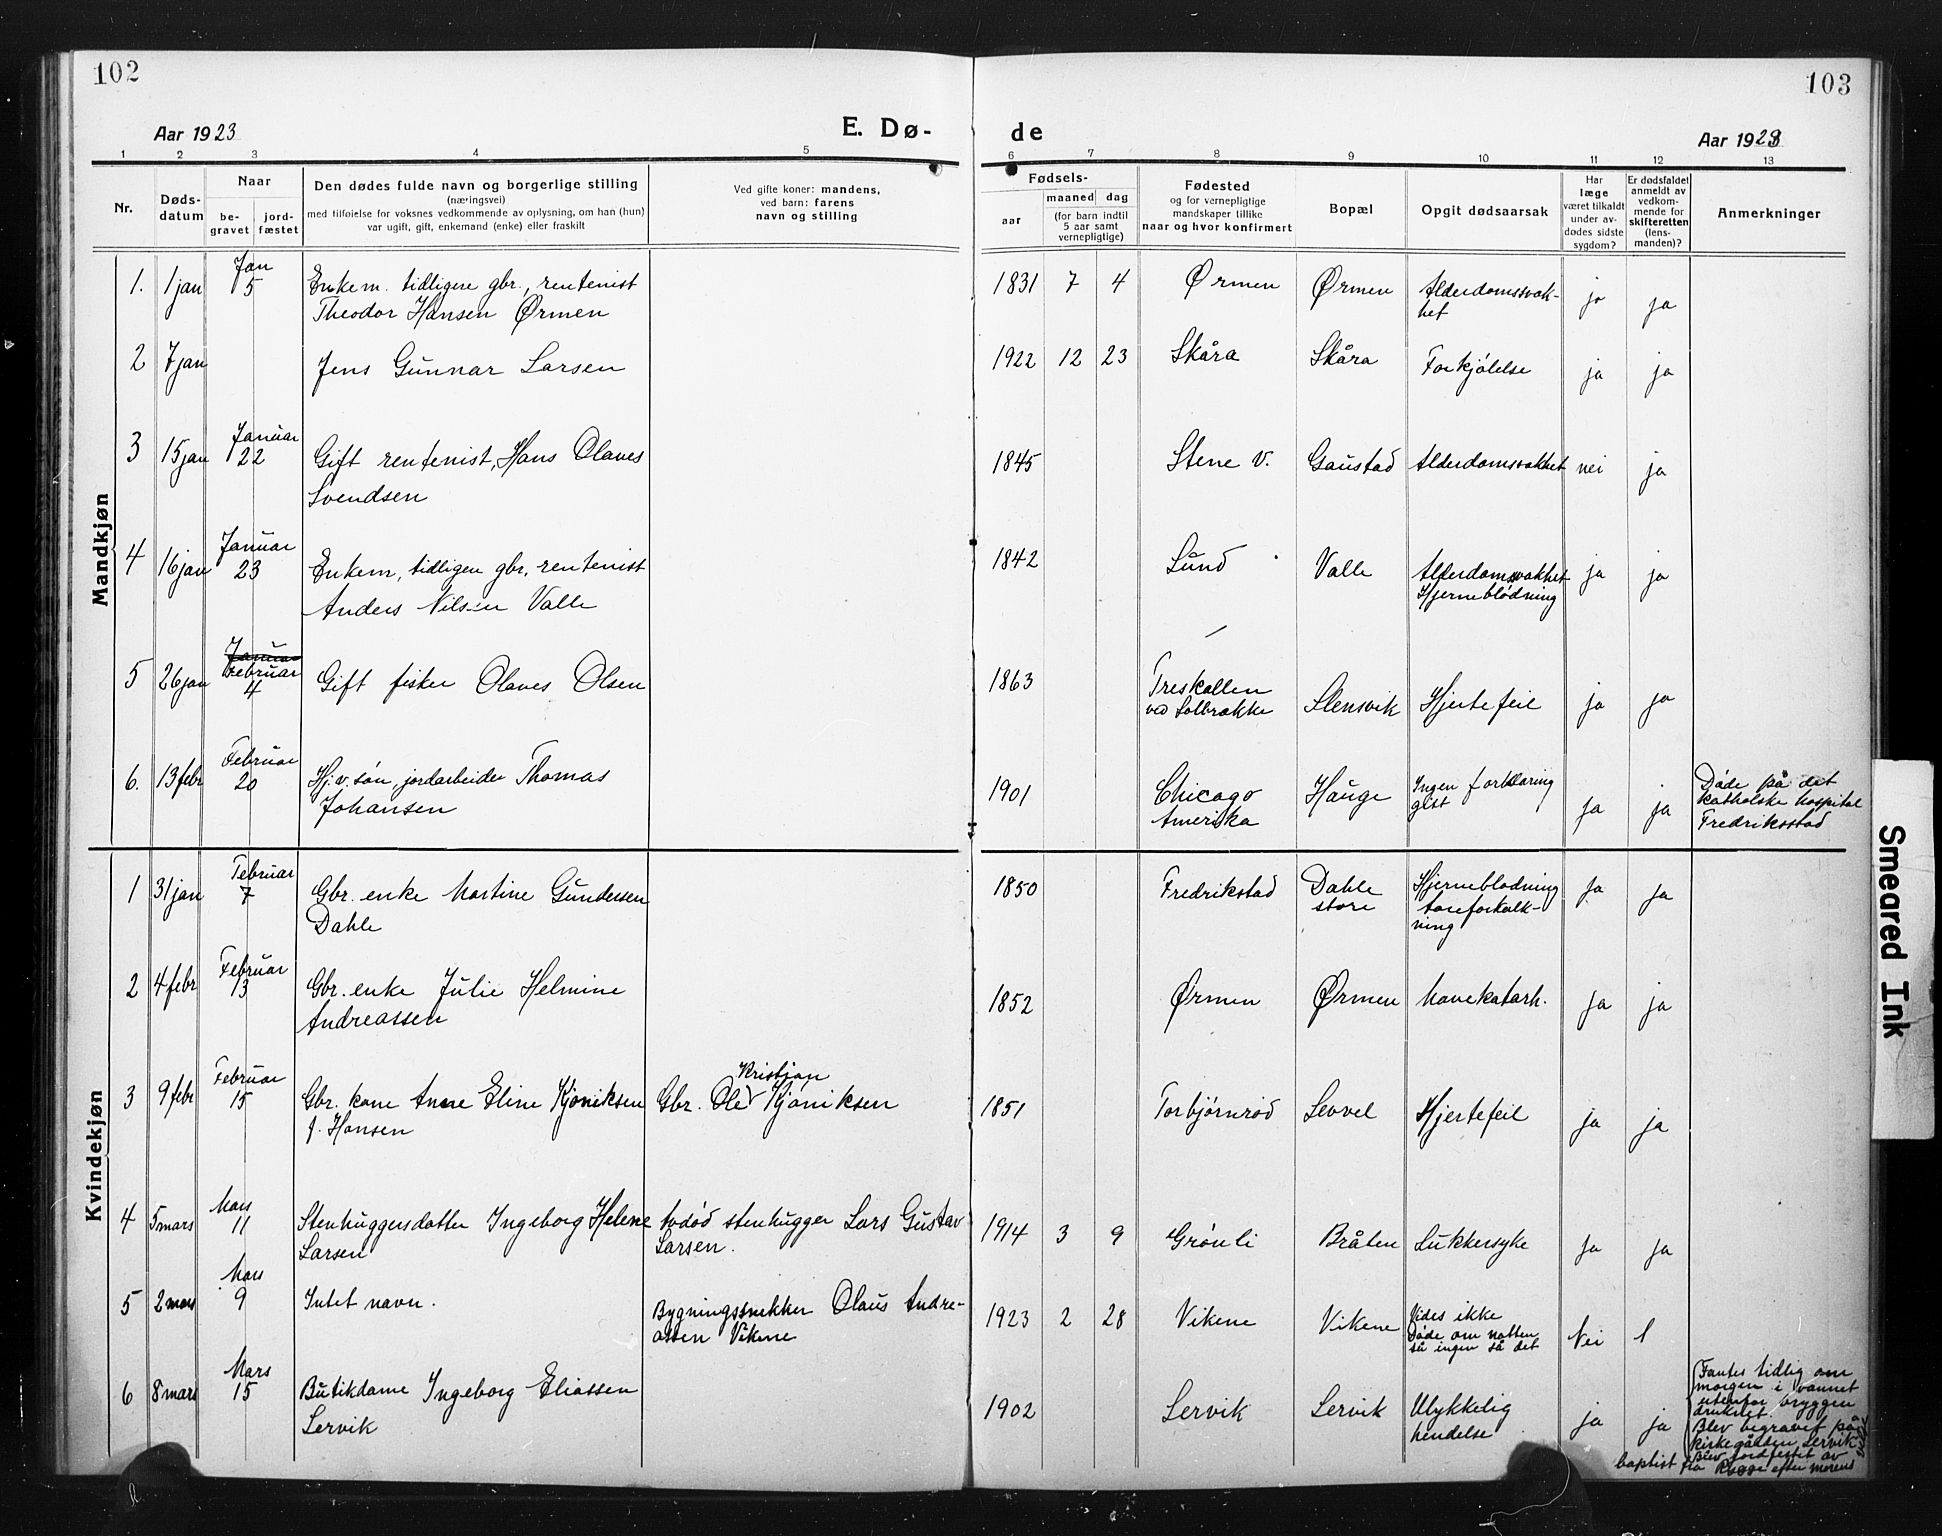 102
103
Aar 1923
E. Dø-
de
Aar 1923
1 2 3 4 5 6 7 8 9 10 11 12 13
Nr.
Døds-
datum
Naar
be-
gravet
jord-
fæstet
Den dødes fulde navn og borgerlige stilling
(næringsvei)
med tilføielse for voksnes vedkommende av oplysning, om han (hun)
var ugift, gift, enkemand (enke) eller fraskilt
Ved gifte koner: mandens,
ved barn: farens
navn og stilling
Fødsels-
aar
maaned dag
(for barn indtil
5 aar samt
vernepligtige)
Fødested
og for vernepligtige
mandskaper tillike
naar og hvor konfirmert
Bopæl
Opgit dødsaarsak
Har
læge
været tilkaldt
under av-
dødes sidste
sygdom?
Er dødsfaldet
anmeldt av
vedkom-
mende for
skifteretten
(lens-
manden)?
Anmerkninger
Mandkjøn
Jan
1. 1 jan 5 Enkem. tidligere gbr., rentenist 1831 7 4 Ørmen Ørmen Alderdomssvak-
Theodor Hansen Ørmen het ja ja
2 7 jan Jens Gunnar Larsen 1922 12 23 Skåra Skåra Forkjølelse ja ja
Januar
3 15 jan 22 Gift rentenist, Hans Olaves 1845 Stene v. Gaustad Alderdomsvakhet nei ja
Svendsen
Januar
4 16 jan 23 Enkem, tidligere gbr, rentenist 1842 Lund Valle Alderdomsvakhet ja ja
Anders Nilsen Valle Hjerneblødning
Januar
Februar
5 26 jan 4 Gift fisker Olaves Olsen 1863 Treskallen
ved Solbrække Slensvik Hjertefeil ja ja
Februar
6. 13 febr 20 Hj.v. søn, jordarbeider Thomas
Johansen 1901 Chicago
Amerika Hauge Ingen forklaring
gitt ja ja Døde på det
katholske hospital
Fredriksstad
Kvindekjøn
Februar
1 31 jan 7 Gbr. enke Martine Gundersen
Dahle 1850 Fredrikstad Dahle
store Hjerneblødning
åreforkalk-
ning ja ja
Februar
2 4 febr 13 Gbr. enke Julie Helmine
Andreassen 1852 Ørmen Ørmen Mavekatarh. ja ja
Februar
3 9 febr 15 Gbr. kone Anne Eline Kjøniksen
f. Hansen
Kristian
Gbr. Ole Kjøniksen 1851 Torbjørnrød Levvel Hjertefeil ja ja
Mars
4 5 mars 11 Stenhuggersdatter Ingeborg Helene
Larsen
avdød stenhugger Lars Gustav
Larsen. 1914 3 9 Grønli Bråten Sukkersyke ja ja
Mars
5 2 mars 9 Intet navn.
Bygningssnekker Olaus Andre-
assen Vikene 1923 2 28 Vikene Vikene Vides ikke
Døde om natten
så ingen så det Nei 1
Mars
6 8 mars 15 Butikdame Ingeborg Eliassen
Lervik 1902 Lervik Lervik Ulykkelig
hendelse ja ja
Fantes tidlig om
morgen i vannet
utenfor bryggen
druknet.
Blev begravet på
kirkegården Lervik
Blev jordfestet av
baptist fra Rygge efter morens
Smeared Ink